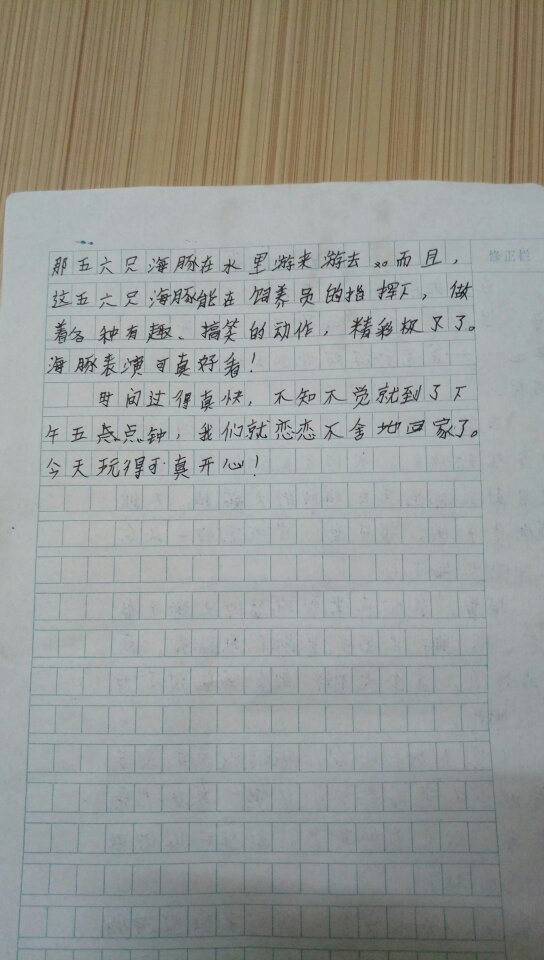 修正栏
那五六只海豚在水里游来游去。而且，
这五六只海豚能在饲养员的指挥下，做
着各种有趣、搞笑的动作，精彩极了。
海豚表演可真好看！
时间过得真快，不知不觉就到了下
午五点钟，我们就恋恋不舍地回家了。
今天玩得可真开心！